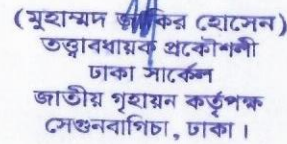 (মুহাম্মদ জাকির হোসেন)
তত্ত্বাবধায়ক প্রকৌশলী
ঢাকা সার্কেল
জাতীয় গৃহায়ন কর্তৃপক্ষ
সেগুনবাগিচা, ঢাকা।